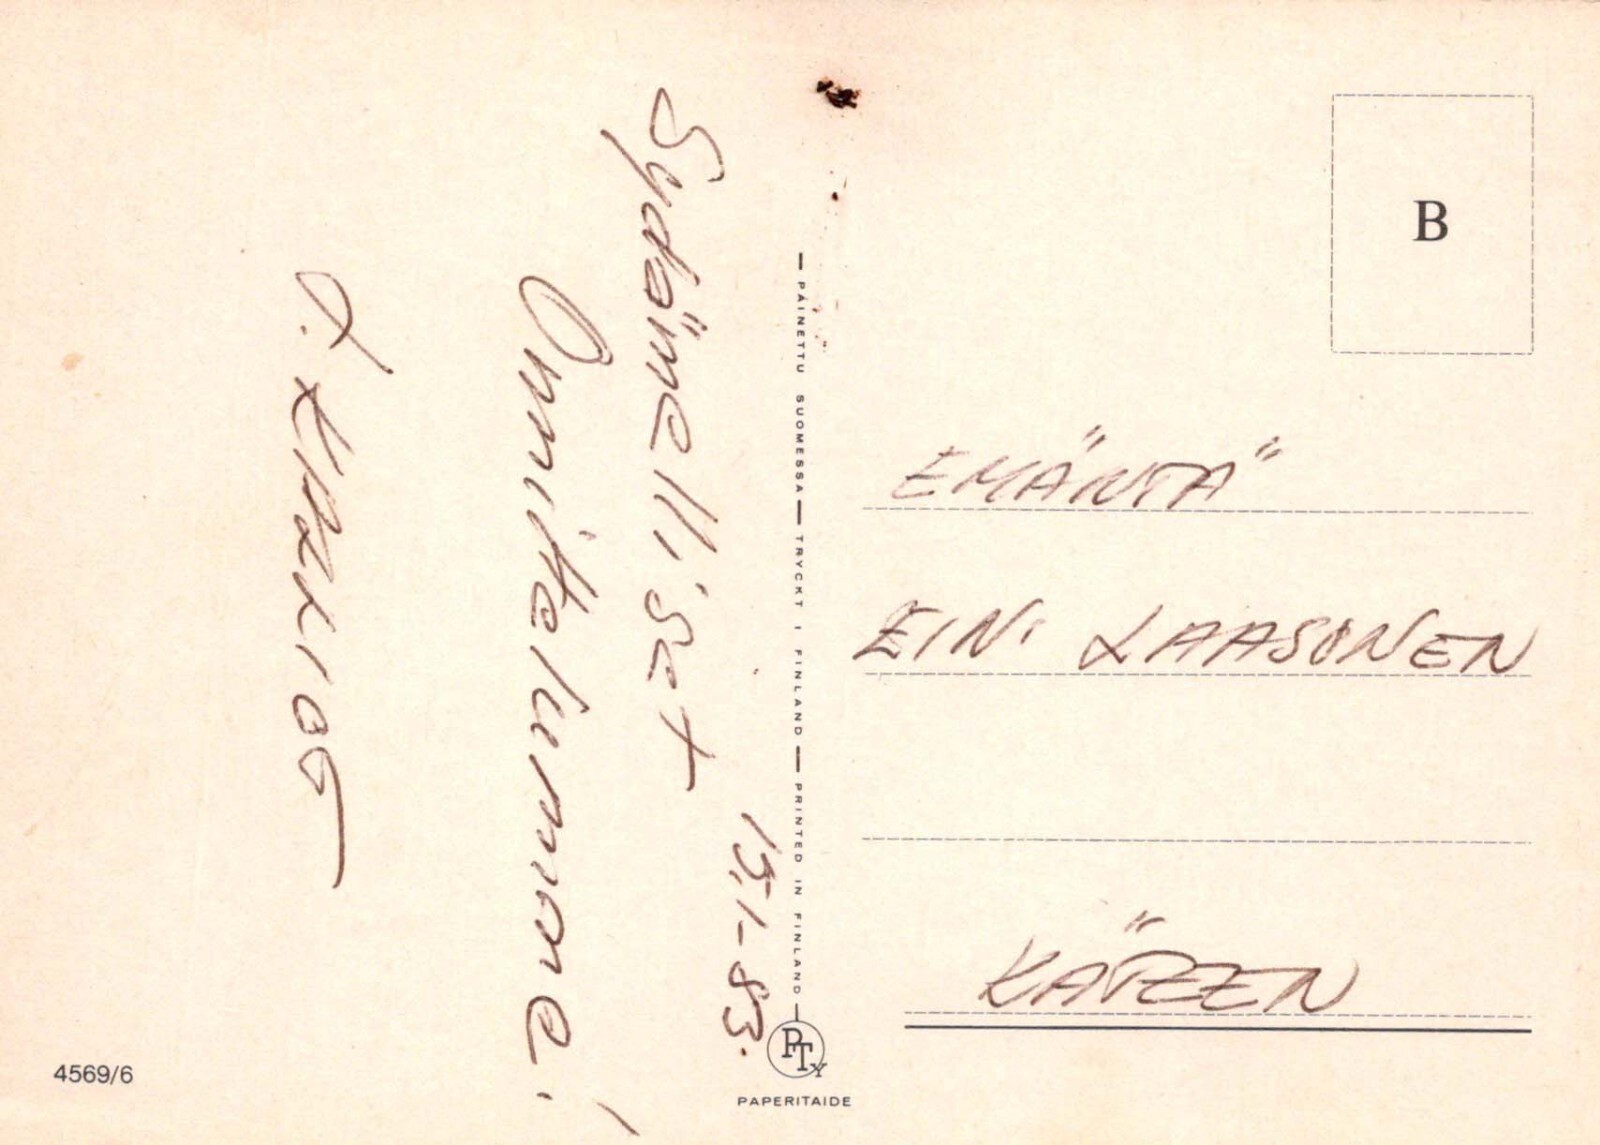 15.1-83.
Sydämelliset
Onnittelumme!
PAINETTU SUOMESSA — TRYCKT I FINLAND — PRINTED IN FINLAND
PTY
PAPERITAIDE
4569/6
B
EMÄNTÄ
EINI LAASONEN